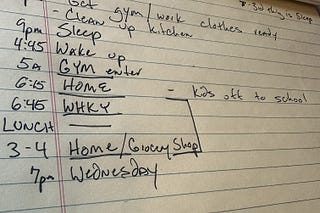 Get gym/work clothes ready
- Clean up kitchen
9pm Sleep
4:45 Wake up
5a GYM enter
6:15 HOME - kids off to school
6:45 WHKY
LUNCH
3-4 Home/Grocery Shop
7pm Wednesday